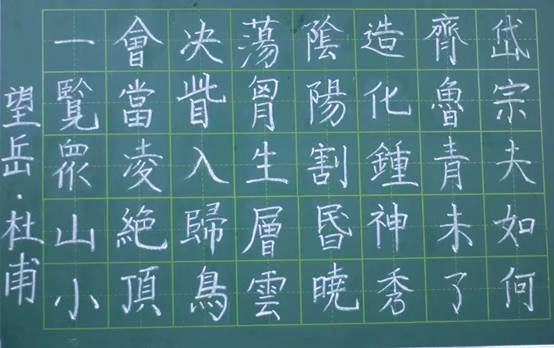 岱宗夫如何
齊魯青未了
造化鍾神秀
陰陽割昬曉
蕩胷生層雲
决眥入歸鳥
會當凌絕頂
一覽眾山小
望岳·杜甫